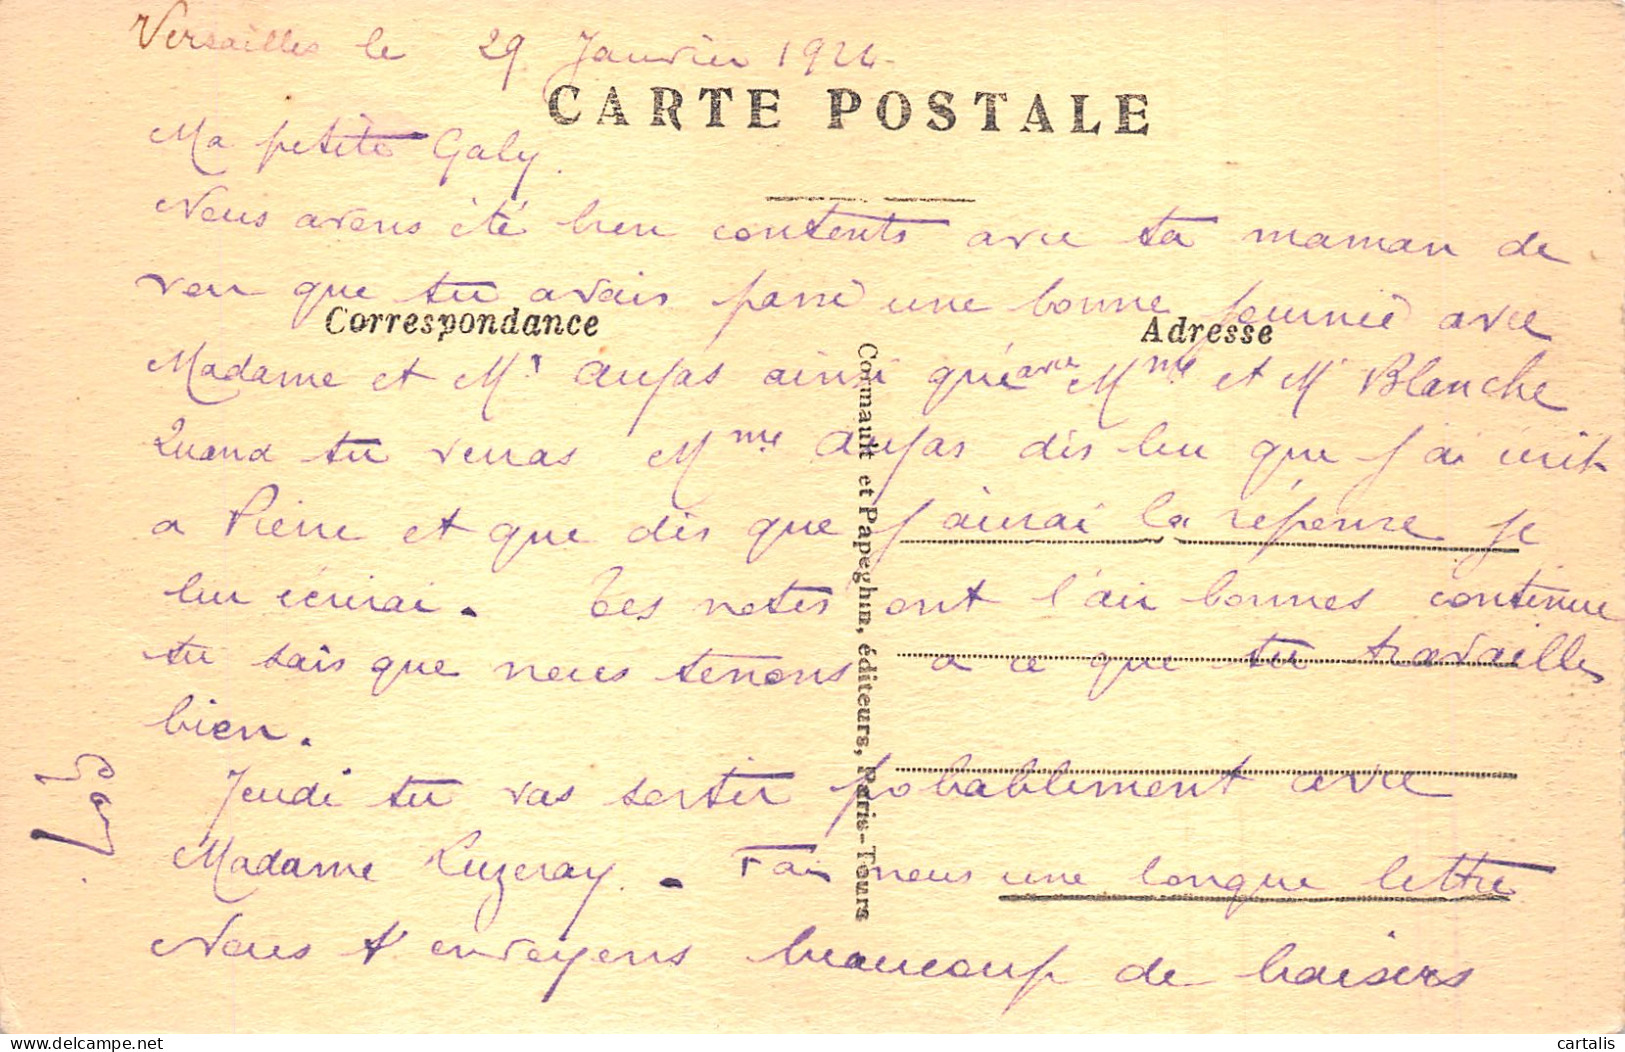 Versailles le 29 Janvier 1924
CARTE POSTALE
Ma petite Galy.
Nous avons été bien contents avec ta maman de
voir que tu avais passé une bonne journée avec
Correspondance
Adresse
Madame et Mr Aujas ainsi que avec Mme et Mr Blanche
Quand tu verras Mme Aujas dis lui que j'ai écrit
a Pierre et que dès que j'aurai la réponse je
lui écrirai. Tes notes ont l'air bonnes continue
tu sais que nous tenons a ce que tu travailles
bien.
Jeudi tu vas sortir probablement avec
Madame Luzeray. Fais nous une longue lettre
Nous t'envoyons beaucoup de baisers
Cormault et Papeghin, éditeurs, Paris-Tours
cartalis